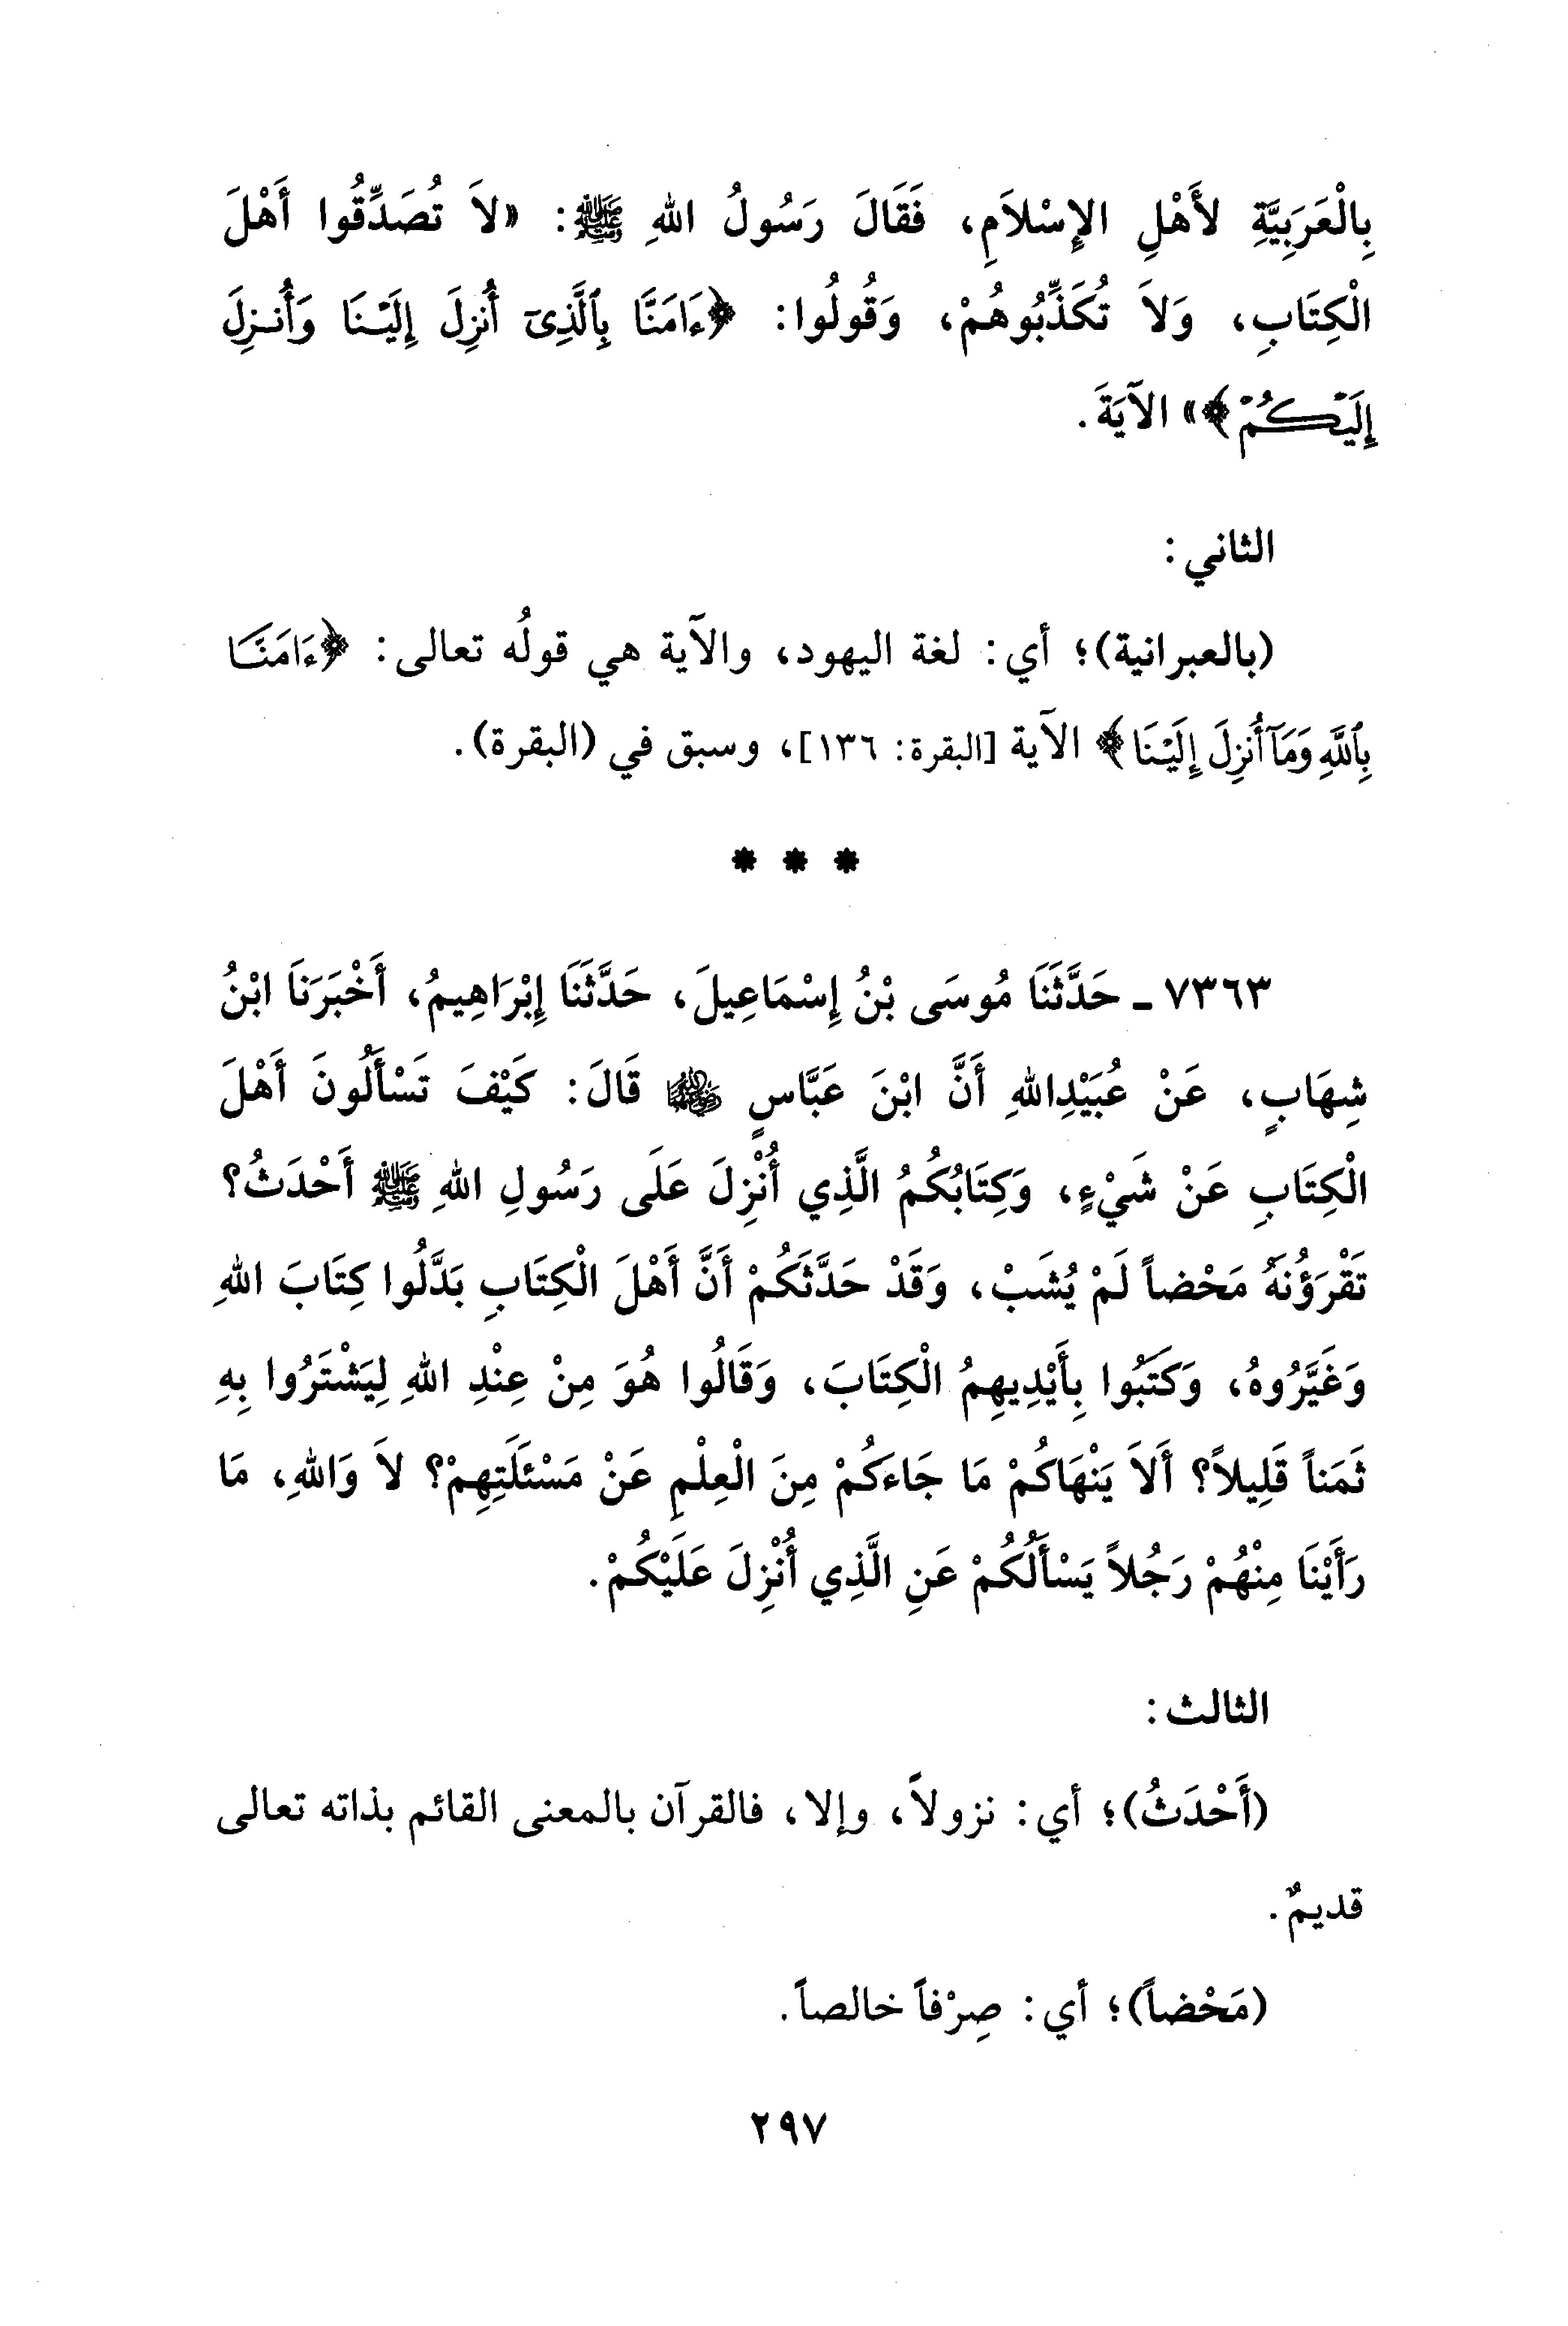 بِالْعَرَبِيَّةِ لأَهْلِ الإِسْلاَمِ، فَقَالَ رَسُولُ اللهِ ﷺ: «لاَ تُصَدِّقُوا أَهْلَ
الْكِتَابِ، وَلاَ تُكَذِّبُوهُمْ، وَقُولُوا: ﴿ءَامَنَّا بِٱلَّذِىٓ أُنزِلَ إِلَيْنَا وَأُنزِلَ
إِلَيْكُمْ﴾» الآيَةَ.
الثاني:
(بالعبرانية)؛ أي: لغة اليهود، والآية هي قولُه تعالى: ﴿ءَامَنَّا
بِٱللَّهِ وَمَآ أُنزِلَ إِلَيْنَا﴾ الآية [البقرة: ١٣٦]، وسبق في (البقرة).
* * *
٧٣٦٣ - حَدَّثَنَا مُوسَى بْنُ إِسْمَاعِيلَ، حَدَّثَنَا إِبْرَاهِيمُ، أَخْبَرَنَا ابْنُ
شِهَابٍ، عَنْ عُبَيْدِاللهِ أَنَّ ابْنَ عَبَّاسٍ ﵄ قَالَ: كَيْفَ تَسْأَلُونَ أَهْلَ
الْكِتَابِ عَنْ شَيْءٍ، وَكِتَابُكُمُ الَّذِي أُنْزِلَ عَلَى رَسُولِ اللهِ ﷺ أَحْدَثُ؟
تَقْرَؤُنَهُ مَحْضاً لَمْ يُشَبْ، وَقَدْ حَدَّثَكُمْ أَنَّ أَهْلَ الْكِتَابِ بَدَّلُوا كِتَابَ اللهِ
وَغَيَّرُوهُ، وَكَتَبُوا بِأَيْدِيهِمُ الْكِتَابَ، وَقَالُوا هُوَ مِنْ عِنْدِ اللهِ لِيَشْتَرُوا بِهِ
ثَمَناً قَلِيلاً؟ أَلاَ يَنْهَاكُمْ مَا جَاءَكُمْ مِنَ الْعِلْمِ عَنْ مَسْئَلَتِهِمْ؟ لاَ وَاللهِ، مَا
رَأَيْنَا مِنْهُمْ رَجُلاً يَسْأَلُكُمْ عَنِ الَّذِي أُنْزِلَ عَلَيْكُمْ.
الثالث:
(أَحْدَثُ)؛ أي: نزولاً، وإلا، فالقرآن بالمعنى القائم بذاته تعالى
قديمٌ.
(مَحْضاً)؛ أي: صِرْفاً خالصاً.
٢٩٧